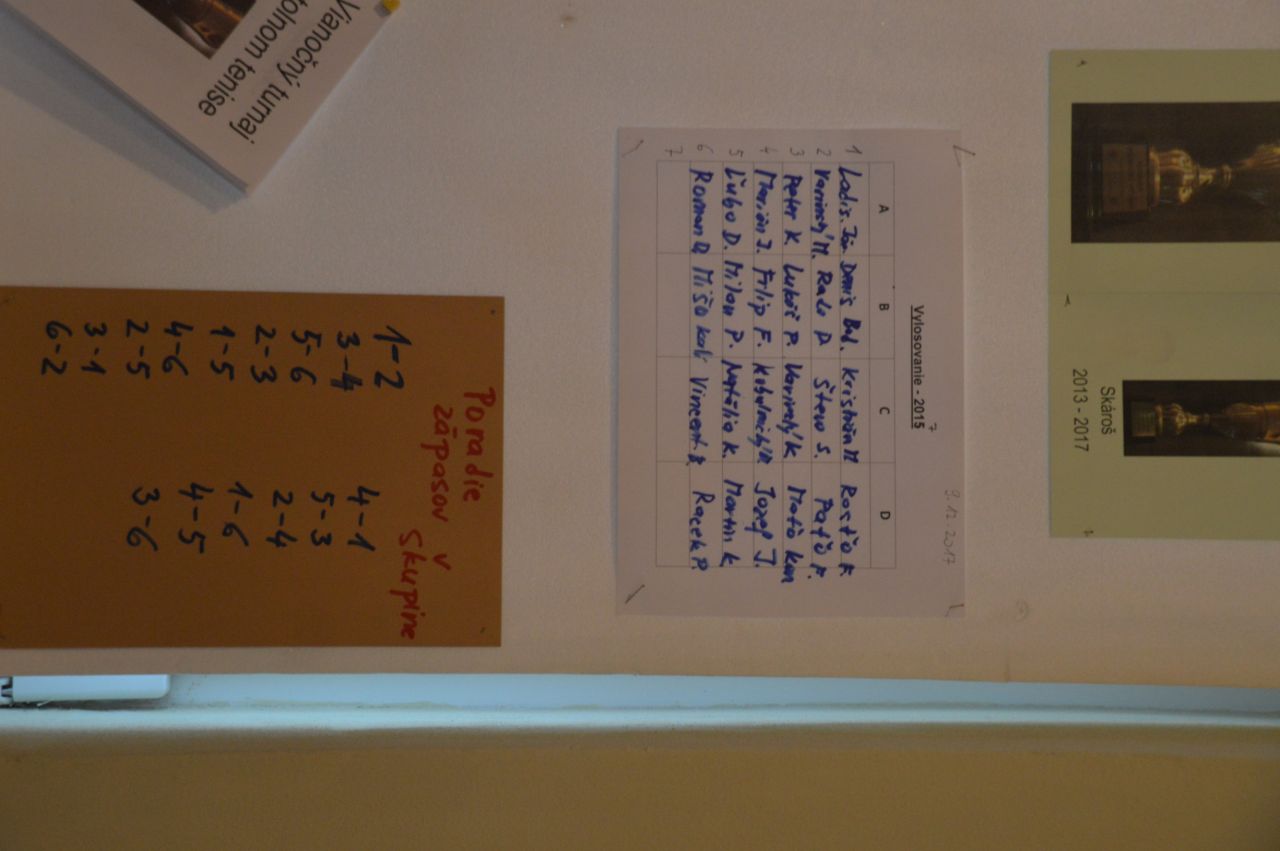 Vianočný turnaj
tolnom tenise
Poradie
zápasov v
skupine
1-2
3-4
5-6
2-3
1-5
4-6
2-5
3-1
6-2
4-1
5-3
2-4
1-6
4-5
3-6
9.12.2017
Vylosovanie - 2015 7
A B C D
1 Ladis. Ján Denis Bed. Kristián M Rasťo F.
2 Varinský M. Rado D Števo S. Paťo F.
3 Peter K. Lukáš P. Varinský K Maťo Kan
4 Marián J. Filip F. Jozef J.
5 Ľubo D. Milan P. Natália K. Martin K.
6 Roman D. Mišo Kali Vincent B. Racek P.
7
Skároš
2013 - 2017